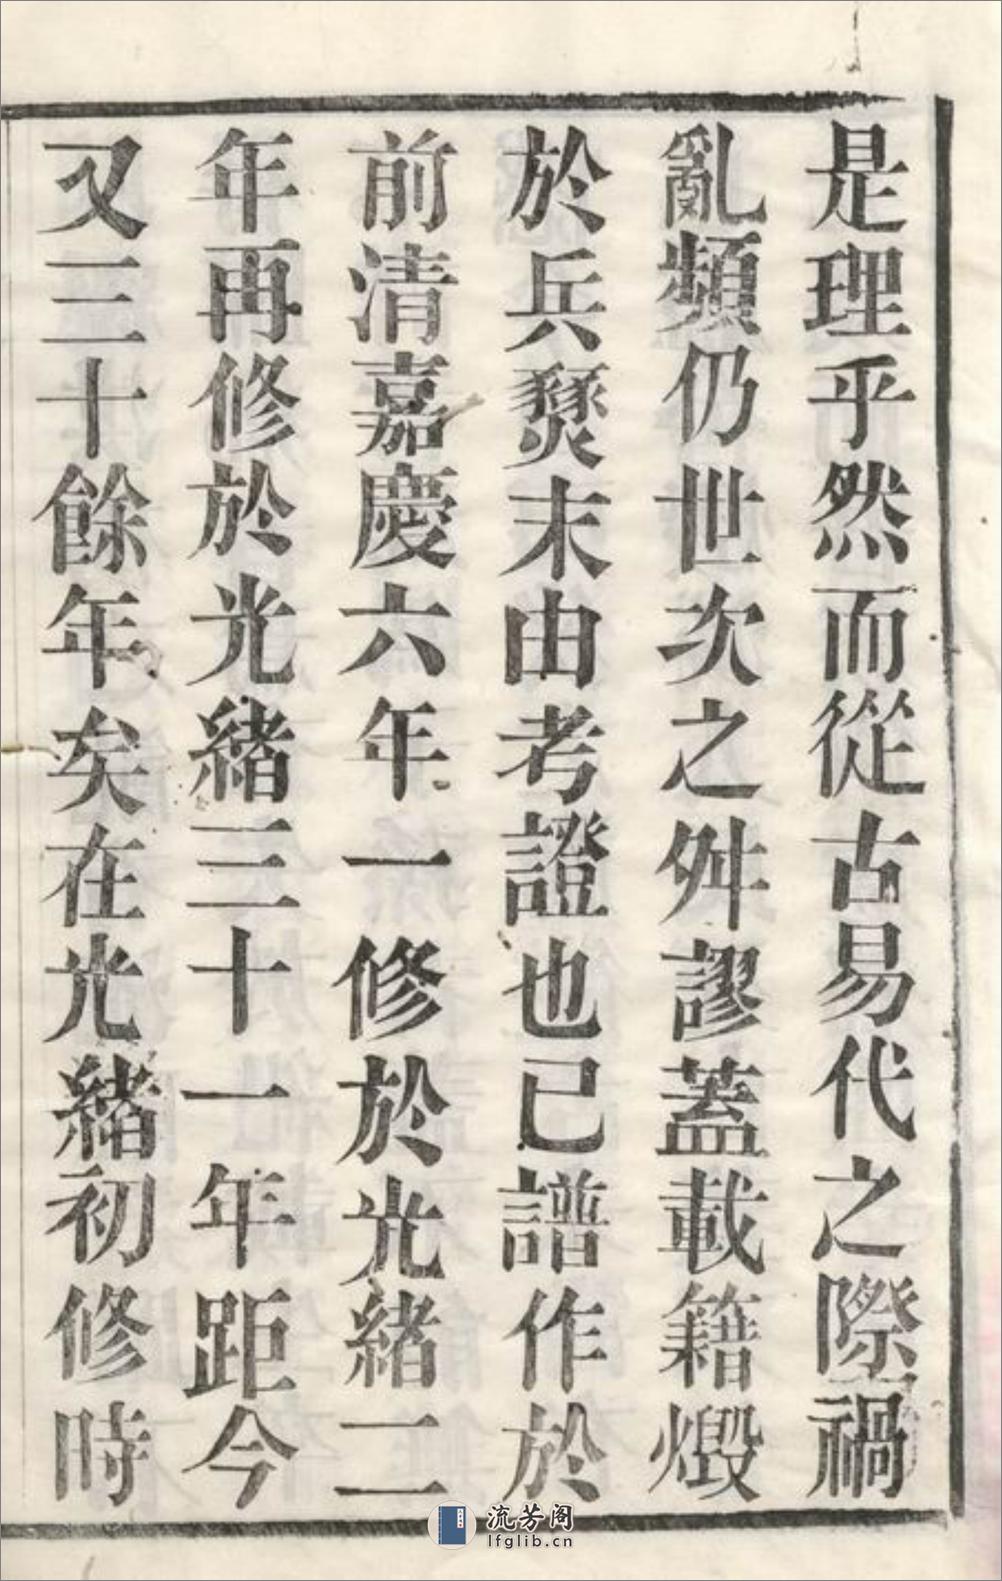 是理乎然而從古易代之際禍
亂頻仍世次之舛謬蓋載籍燬
於兵燹末由考證也已譜作於
前清嘉慶六年一修於光緒二
年再修於光緒三十一年距今
又三十餘年矣在光緒初修時
流芳阁
lfglib.cn